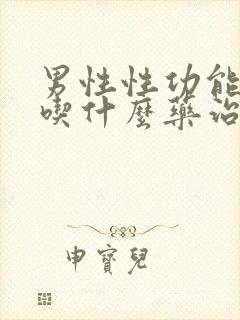 男性性功能
喫什麼藥治
申寶兒